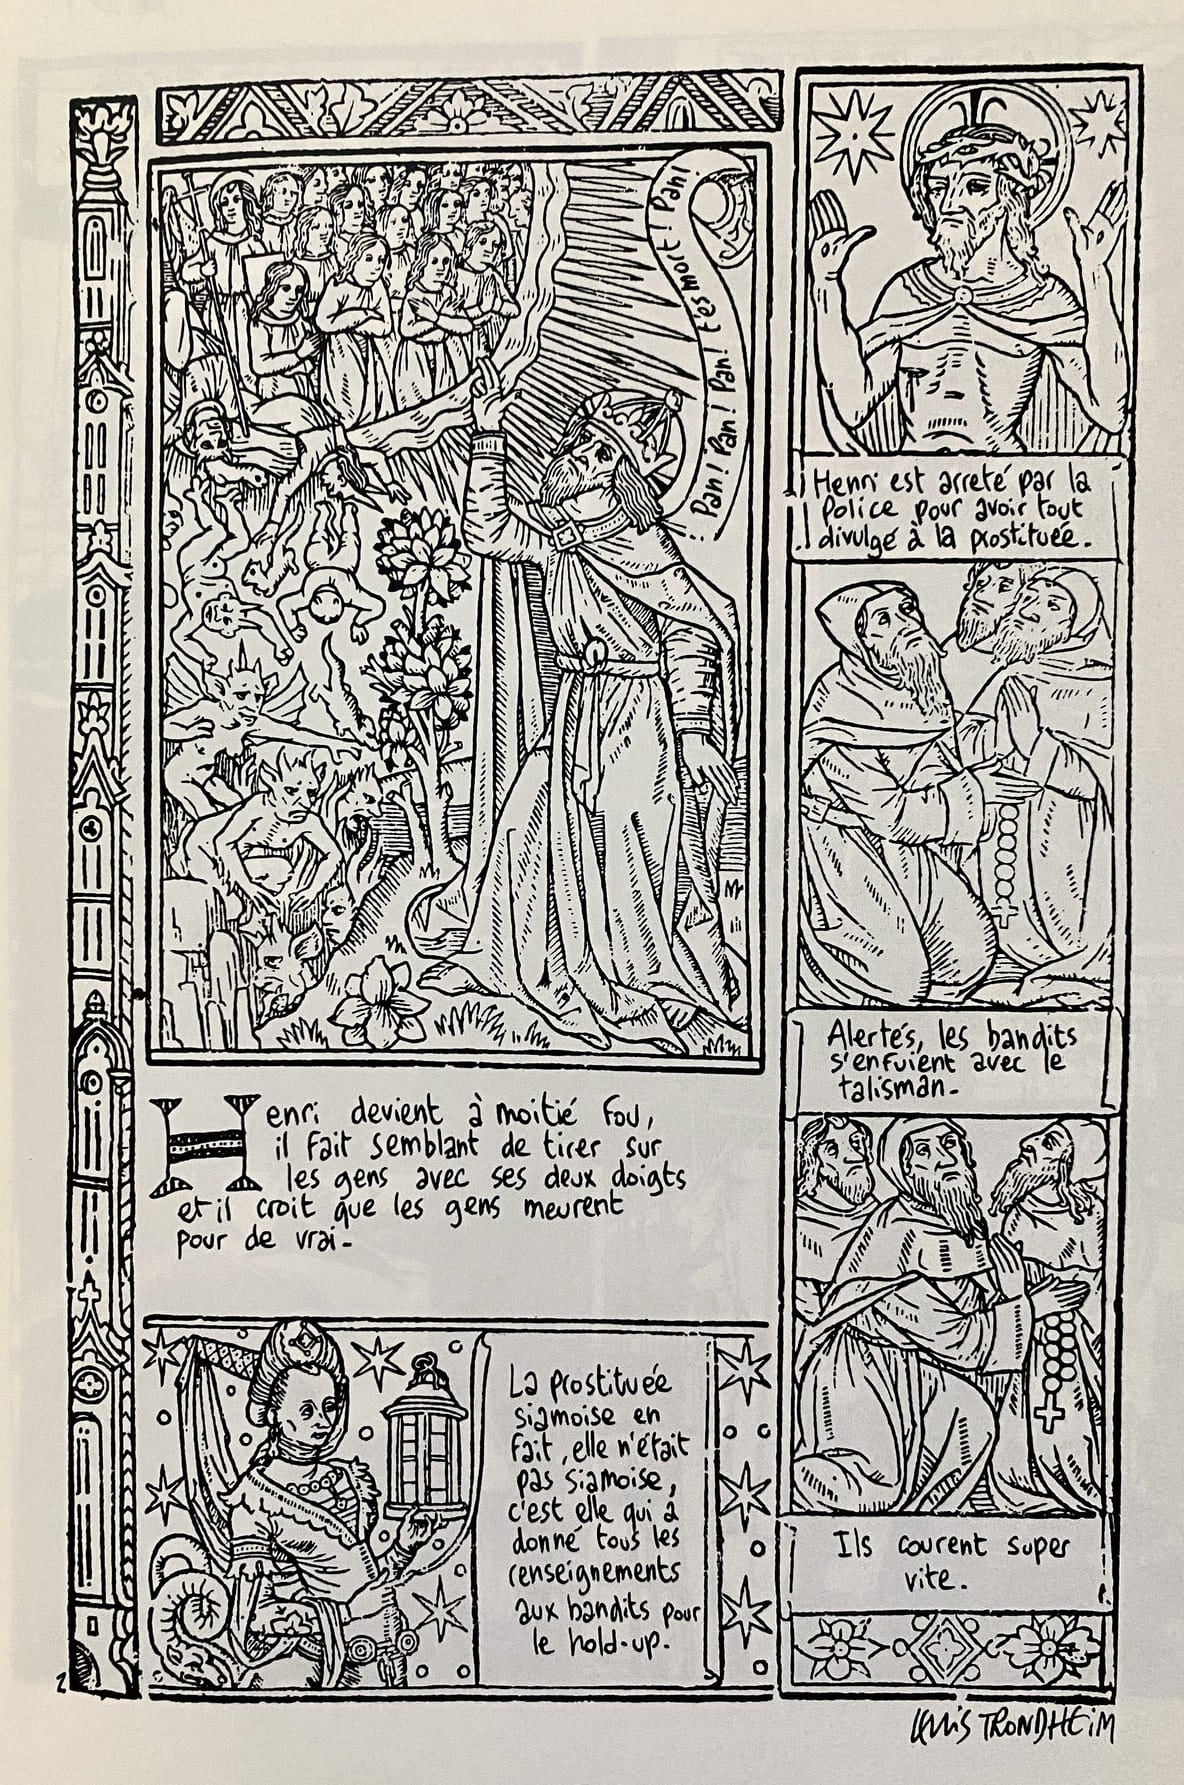 Pan! Pan! Pan! Pan! t'es mort! Pan!
Henri devient à moitié fou,
il fait semblant de tirer sur
les gens avec ses deux doigts
et il croit que les gens meurent
pour de vrai.
La prostituée
siamoise en
fait, elle n'était
pas siamoise,
c'est elle qui a
donné tous les
renseignements
aux bandits pour
le hold-up.
Henri est arreté par la
Police pour avoir tout
divulgé à la prostituée.
Alertés, les bandits
s'enfuient avec le
talisman.
Ils courent super
vite.
2
LEWIS TRONDHEIM